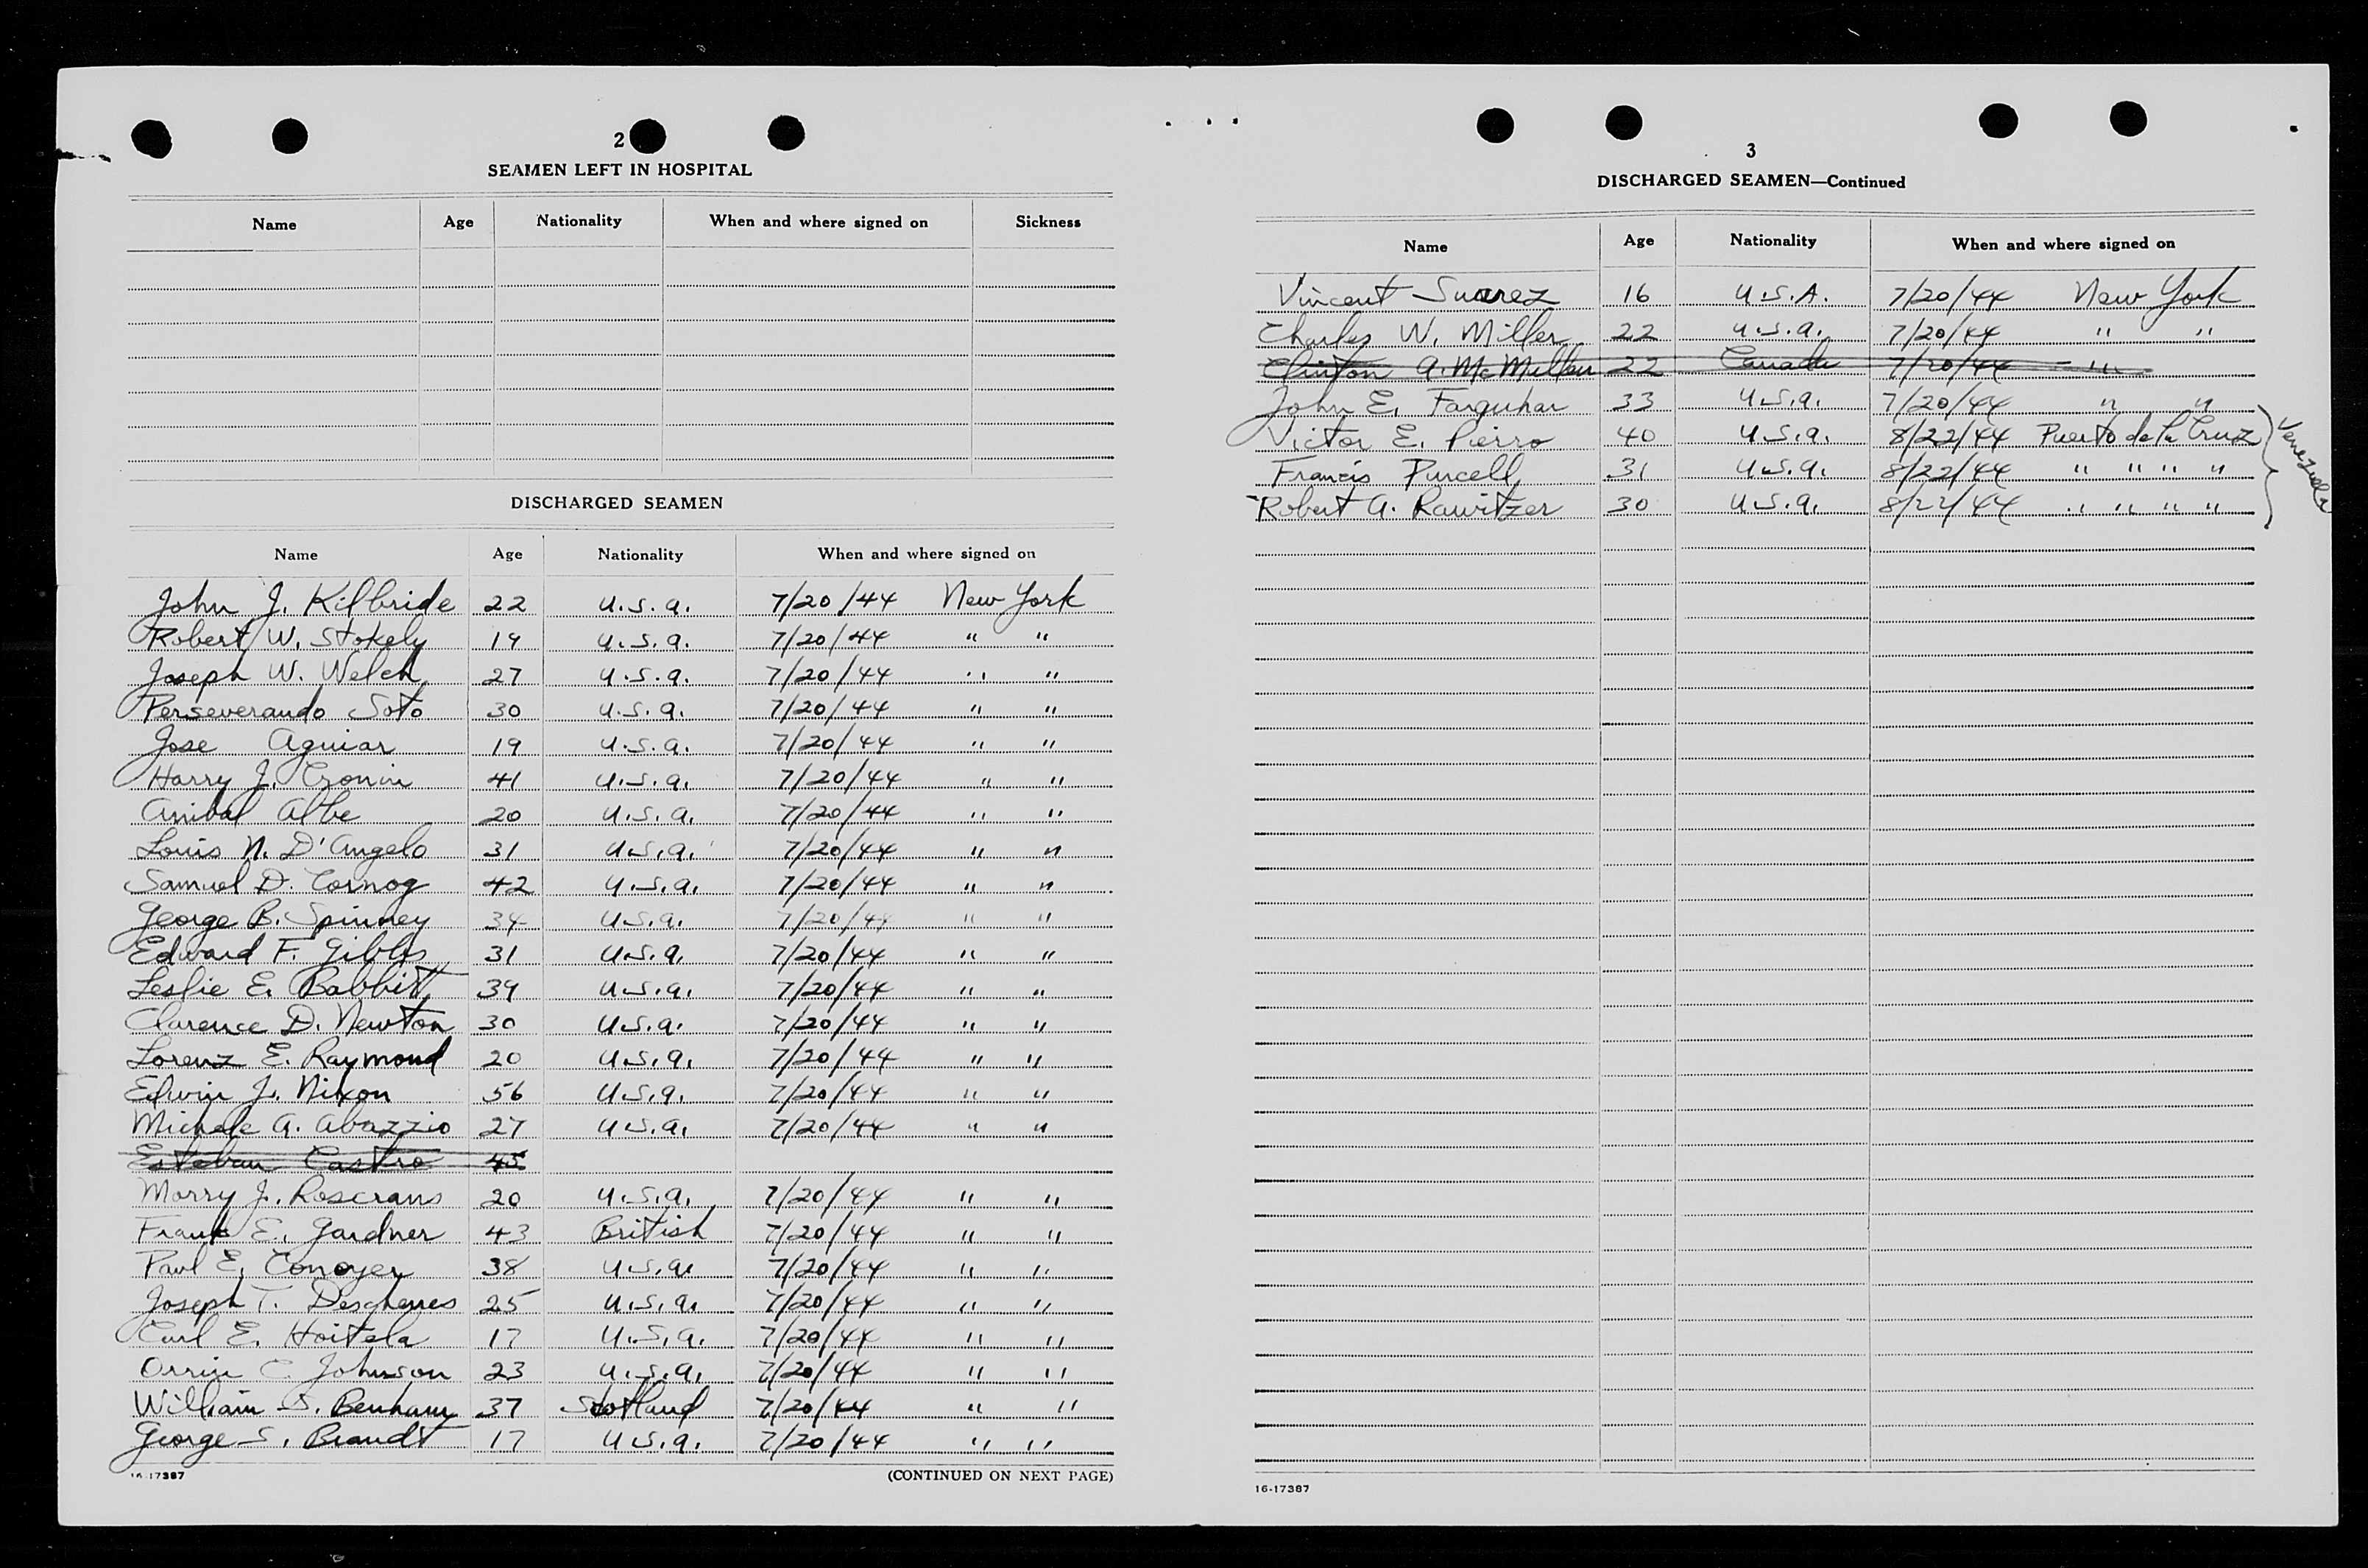 2
SEAMEN LEFT IN HOSPITAL
Name Age Nationality When and where signed on Sickness
DISCHARGED SEAMEN
Name Age Nationality When and where signed on
John J. Kilbride 22 U.S.A. 7/20/44 New York
Robert W. Stokely 19 U.S.A. 7/20/44 " "
Joseph W. Welch 27 U.S.A. 7/20/44 " "
Perseverando Soto 30 U.S.A. 7/20/44 " "
Jose Aguiar 19 U.S.A. 7/20/44 " "
Harry J. Cronin 41 U.S.A. 7/20/44 " "
Anibal Albe 20 U.S.A. 7/20/44 " "
Louis N. D'Angelo 31 U.S.A. 7/20/44 " "
Samuel D. Cornog 42 U.S.A. 7/20/44 " "
George B. Spinney 34 U.S.A. 7/20/44 " "
Edward F. Gibbs 31 U.S.A. 7/20/44 " "
Leslie E. Babbitt 39 U.S.A. 7/20/44 " "
Clarence D. Newton 30 U.S.A. 7/20/44 " "
Lorenz E. Raymond 20 U.S.A. 7/20/44 " "
Edwin J. Nixon 56 U.S.A. 7/20/44 " "
Michele A. Abazzio 27 U.S.A. 7/20/44 " "
Esteban Castro 45
Morry J. Roscrans 20 U.S.A. 7/20/44 " "
Frank E. Gardner 43 British 7/20/44 " "
Paul E. Conoyer 38 U.S.A. 7/20/44 " "
Joseph T. Deschenes 25 U.S.A. 7/20/44 " "
Carl E. Hoitela 17 U.S.A. 7/20/44 " "
Orrin C. Johnson 23 U.S.A. 7/20/44 " "
William S. Benham 37 Scotland 7/20/44 " "
George S. Brandt 17 U.S.A. 7/20/44 " "
16-17387 (CONTINUED ON NEXT PAGE)
3
DISCHARGED SEAMEN—Continued
Name Age Nationality When and where signed on
Vincent Suarez 16 U.S.A. 7/20/44 New York
Charles W. Miller 22 U.S.A. 7/20/44 " "
Clinton A. McMillan 22 Canada 7/20/44 "
John E. Farquhar 33 U.S.A. 7/20/44 " "
Victor E. Pierro 40 U.S.A. 8/22/44 Puerto de la Cruz
Francis Purcell 31 U.S.A. 8/22/44 " " " "
Robert A. Rawitzer 30 U.S.A. 8/22/44 " " " "
Venezuela
16-17387